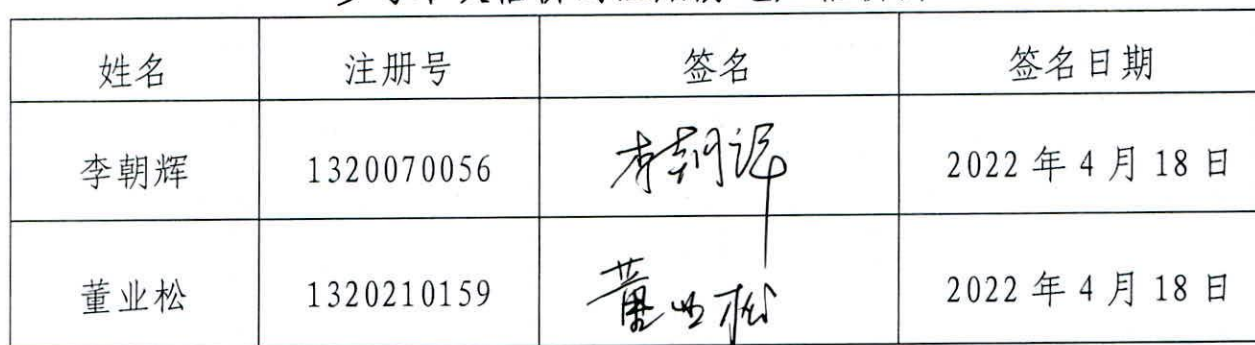 姓名 注册号 签名 签名日期
李朝辉 1320070056 李朝辉 2022年4月18日
董业松 1320210159 董业松 2022年4月18日